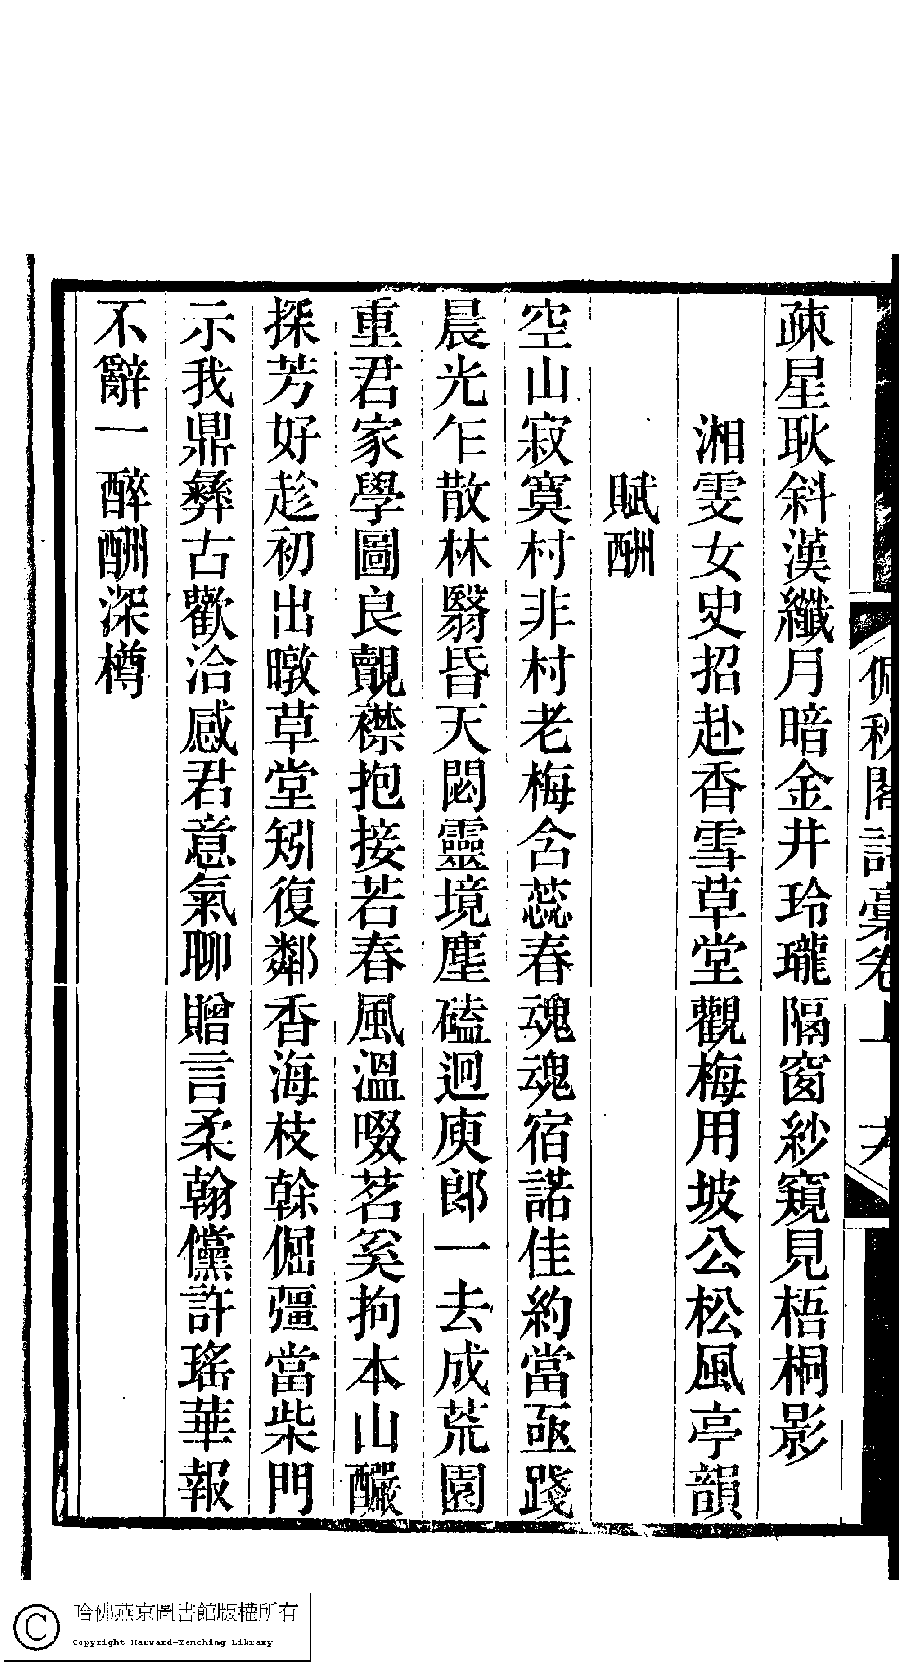 疎星耿斜漢纖月暗金井玲瓏隔窗紗窺見梧桐影
湘雯女史招赴香雪草堂觀梅用坡公松風亭韻
賦酬
空山寂寞村非村老梅含蕊春魂魂宿諾佳約當亟踐
晨光乍散林翳昏天閟靈境塵磕迥庾郎一去成荒園
重君家學圖良覿襟抱接若春風溫啜茗奚拘本山釅
探芳好趁初出暾草堂矧復鄰香海枝榦倔彊當柴門
示我鼎彝古歡洽感君意氣聊贈言柔翰儻許瑤華報
不辭一醉酬深樽
佩秋閣詩稾卷上
哈佛燕京圖書館版權所有
Copyright Harvard-Yenching Library